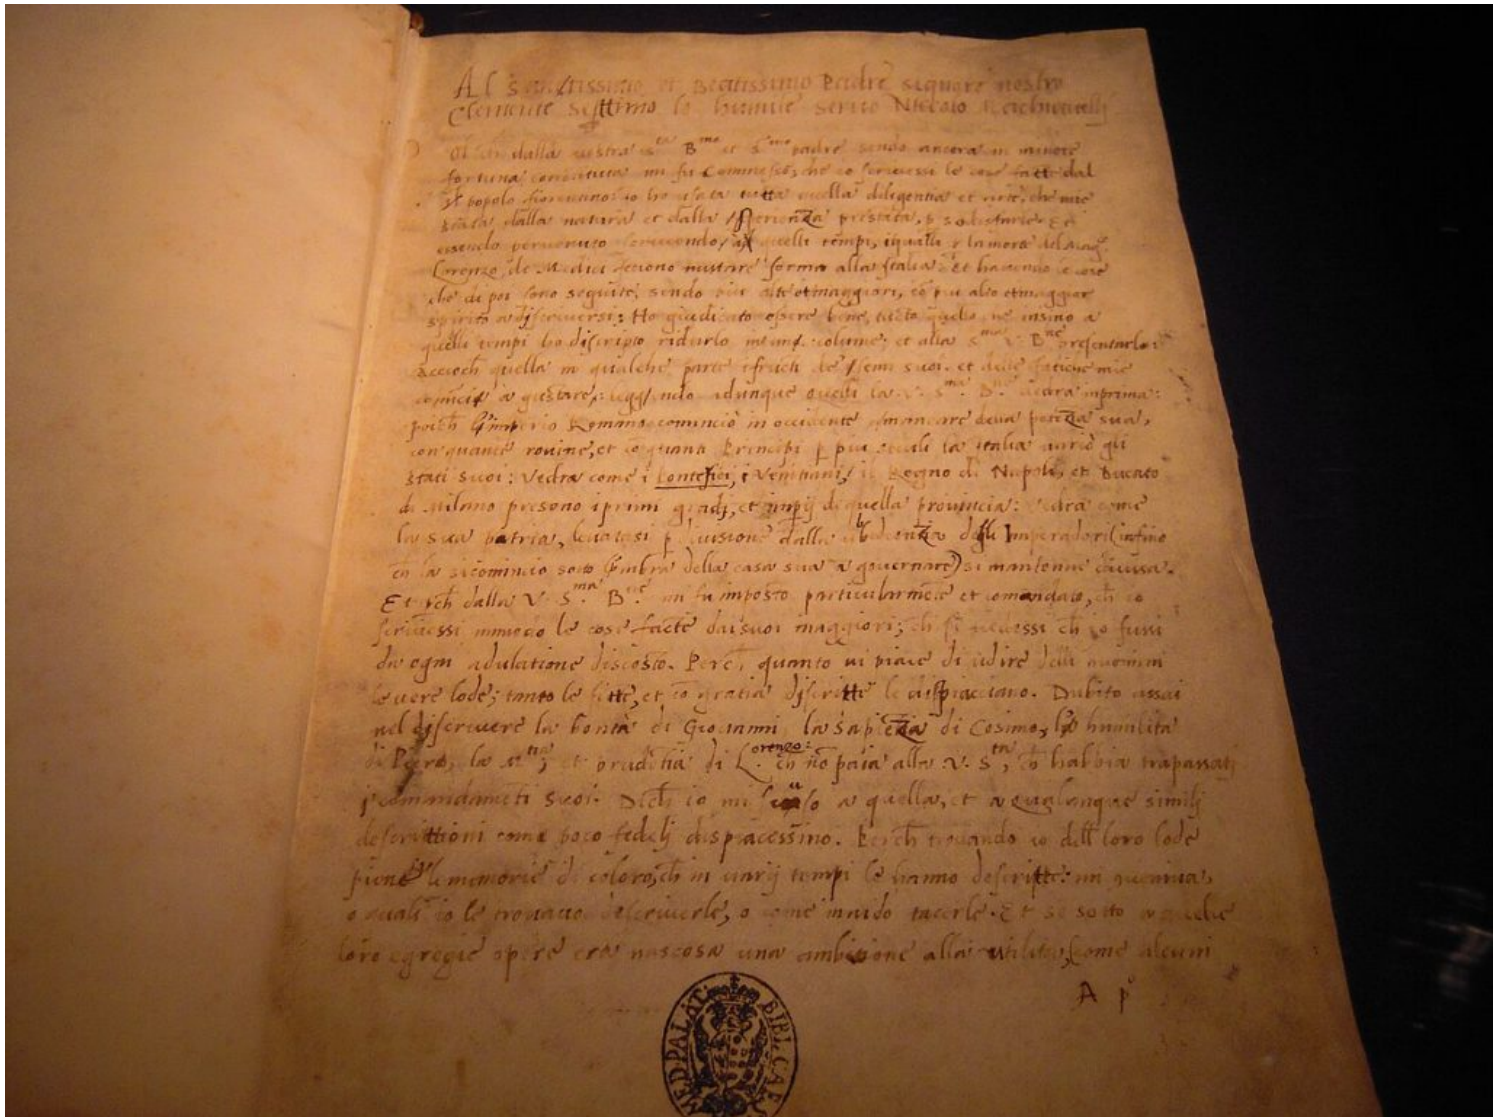 Al sanctissimo et Beatissimo Padre signore nostro
Clemente septimo lo humile servo Niccolo Machiavelli
dalla vostra Sta Bmo et Smo padre sendo ancora in minore
fortuna constituta mi fu commesso, che io scrivessi le cose fatte dal
popolo fiorentino: io ho usata tutta quella diligentia et arte, che mi e
stata dalla natura et dalla sperienza prestata, p sodisfarle. Et
essendo pervenuto scrivendo, a quelli tempi, iquali p la morte del Mag.co
Lorenzo de Medici feciono mutare forma alla Italia: Et havendo le cose
che di poi sono seguite, sendo piu alte et maggiori, cō piu alto et maggior
spirito a discriversi: Ho giudicato essere bene, tutto quello, ne insino a
quelli tempi ho discripto ridurlo in un volume; et alla Sma V. Bne presentarlo:
accioch quella in qualche parte i fructi de semi suoi. et delle fatiche mie
cominci a gustare,: leggendo adunque quelli la V. Sma. Bne. vedra inprima:
poich l'imperio Romano comincio in occidente a mancare della potēza sua,
con quante rovine, et cō quanti Principi p piu secoli la italia vario gli
stati suoi: Vedra come i pontefici, i Venitiani, il Regno di Napoli, et Ducato
di Milano presono i primi gradi, et imperij di quella provincia: vedra come
la sua patria, levatasi p divisione dalla ubbedienzia degli Imperadori (infino
ch la si comincio sotto l'ombra della casa sua a governare) si mantenne divisa.
Et pch dalla V. Sma. Bne. mi fu imposto particularmēte et comandato, ch io
scrivessi in modo le cose facte dai suoi maggiori; ch si vedessi ch io fussi
da ogni adulatione discosto. Perch quanto vi piace di udire delli uomini
le vere lode; tanto le fitte, et cō gratia discritte le dispiacciano. Dubito assai
nel discrivere la bontà di Giovanni, la Sapiēza di Cosimo, la humilita
di Piero, la Mtia, et prudētia di Lorenzo: ch nō paia alla V. Sta, ch habbia trapassati
i comandamēti suoi. Dich io mi scuso a quella, et a qualunque simili
descrittioni come poco fedeli dispiacessino. Perch trovando io dell loro lode
piene le memorie di coloro, ch in varij tempi le hanno descritte: mi conveniva,
o quali io le trovavo descriverle, o come invido tacerle. Et se sotto a quelle
loro egregie opere era nascosa una ambitione alla utilita, come alcuni
A p°
MED. PALAT. BIBL. CAE